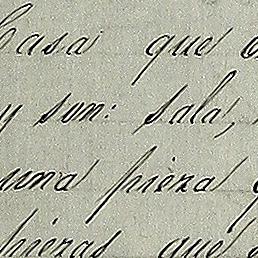 Casa que
y son: sala,
una pieza
piezas que